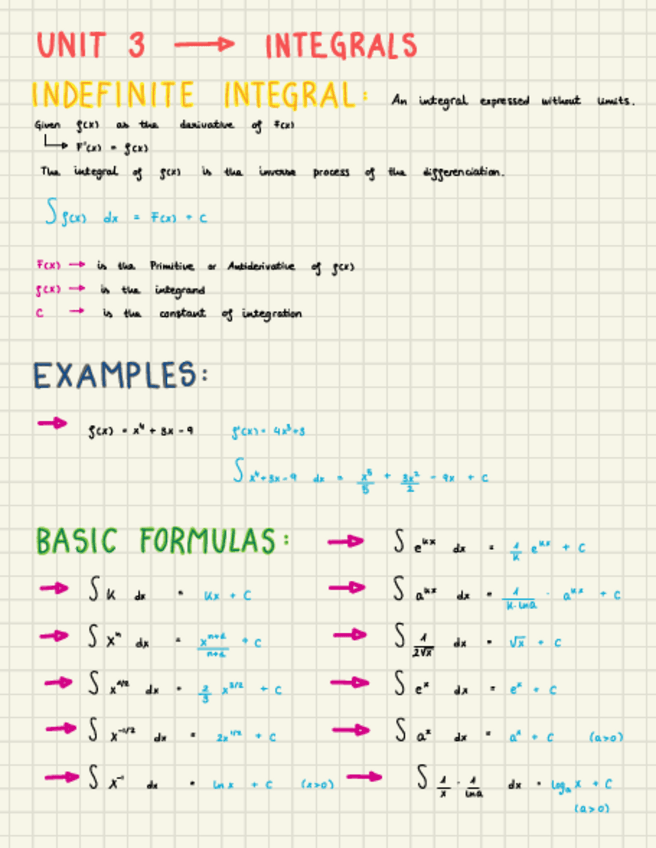 UNIT 3 → INTEGRALS
INDEFINITE INTEGRAL: An integral expressed without limits.
Given f(x) as the derivative of F(x)
↳ F'(x) = f(x)
The integral of f(x) is the inverse process of the differenciation.
∫ f(x) dx = F(x) + C
F(x) → is the Primitive or Antiderivative of f(x)
f(x) → is the integrand
C → is the constant of integration
EXAMPLES:
→ f(x) = x⁴ + 3x - 9 f'(x) = 4x³+3
∫ x⁴+3x-9 dx = x⁵/5 + 3x²/2 - 9x + C
BASIC FORMULAS:
→ ∫ k dx = kx + C
→ ∫ xⁿ dx = xⁿ⁺¹/n+1 + C
→ ∫ x^1/2 dx = 2/3 x^3/2 + C
→ ∫ x^-1/2 dx = 2x^1/2 + C
→ ∫ x⁻¹ dx = ln x + C (x>0)
→ ∫ e^kx dx = 1/k e^kx + C
→ ∫ a^kx dx = 1/k·lna · a^kx + C
→ ∫ 1/2√x dx = √x + C
→ ∫ eˣ dx = eˣ + C
→ ∫ aˣ dx = aˣ + C (a>0)
→ ∫ 1/x · 1/lna dx = logₐ x + C
(a>0)